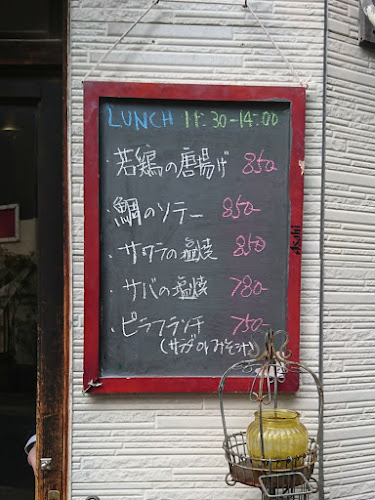 LUNCH 11:30-14:00
・若鶏の唐揚げ 850-
・鯛のソテー 850-
・サワラの塩焼 850-
・サバの塩焼 780-
・ピラフランチ 750-
(サラダorみそ汁)
Asahi